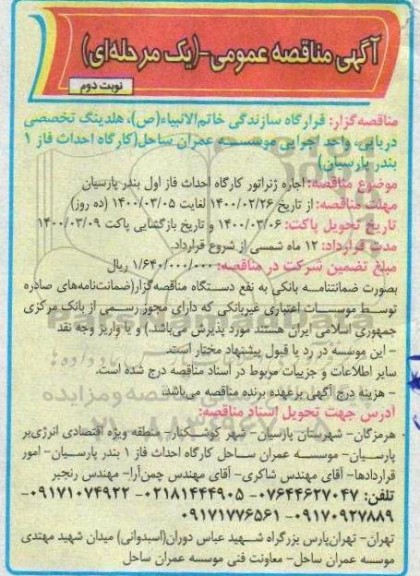 آگهی مناقصه عمومی-(یک مرحله‌ای)
نوبت دوم
مناقصه‌گزار: قرارگاه سازندگی خاتم‌الانبیاء(ص)، هلدینگ تخصصی
دریایی، واحد اجرایی موسسه عمران ساحل(کارگاه احداث فاز ۱
بندر پارسیان)
موضوع مناقصه: اجاره ژنراتور کارگاه احداث فاز اول بندر پارسیان
مهلت مناقصه: از تاریخ ۱۴۰۰/۰۲/۲۶ لغایت ۱۴۰۰/۰۳/۰۵ (ده روز)
تاریخ تحویل پاکت: ۱۴۰۰/۰۳/۰۶ و تاریخ بازگشایی پاکت ۱۴۰۰/۰۳/۰۹
مدت قرارداد: ۱۲ ماه شمسی از شروع قرارداد.
مبلغ تضمین شرکت در مناقصه: ۱/۶۴۰/۰۰۰/۰۰۰ ریال
بصورت ضمانتنامه بانکی به نفع دستگاه مناقصه‌گزار(ضمانت‌نامه‌های صادره
توسط موسسات اعتباری غیربانکی که دارای مجوز رسمی از بانک مرکزی
جمهوری اسلامی ایران هستند مورد پذیرش می‌باشد.) و یا واریز وجه نقد
- این موسسه در رد یا قبول پیشنهاد مختار است.
سایر اطلاعات و جزییات مربوط در اسناد مناقصه درج شده است.
- هزینه درج آگهی برعهده برنده مناقصه می‌باشد.
آدرس جهت تحویل اسناد مناقصه:
هرمزگان- شهرستان پارسیان- شهر کوشکنار- منطقه ویژه اقتصادی انرژی‌بر
پارسیان- موسسه عمران ساحل کارگاه احداث فاز ۱ بندر پارسیان- امور
قراردادها- آقای مهندس شاکری- آقای مهندس چمن‌آرا- مهندس رنجبر
تلفن: ۰۷۶۴۴۶۲۷۰۴۷-۰۲۱۸۱۴۴۴۹۰۵-۰۹۱۷۱۰۷۴۹۲۲-
۰۹۱۷۰۹۲۷۸۸۹-۰۹۱۷۱۷۷۶۵۶۱
تهران- تهران‌پارس بزرگراه شهید عباس دوران(اسبدوانی) میدان شهید مهتدی
موسسه عمران ساحل- معاونت فنی موسسه عمران ساحل